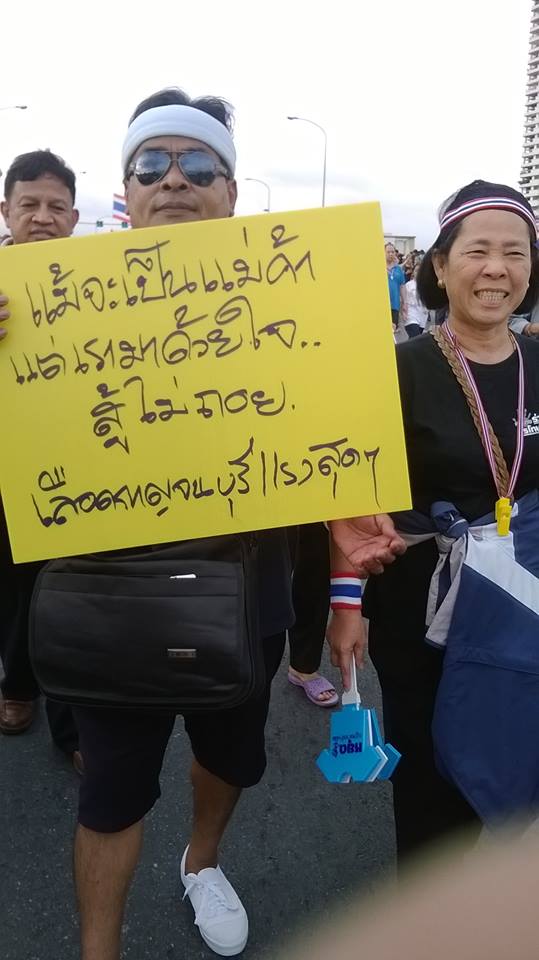 แม้จะเป็นแม่ค้า
แต่เรามาด้วยใจ..
สู้ไม่ถอย.
เลือดกาญจนบุรี แรงสุดๆ